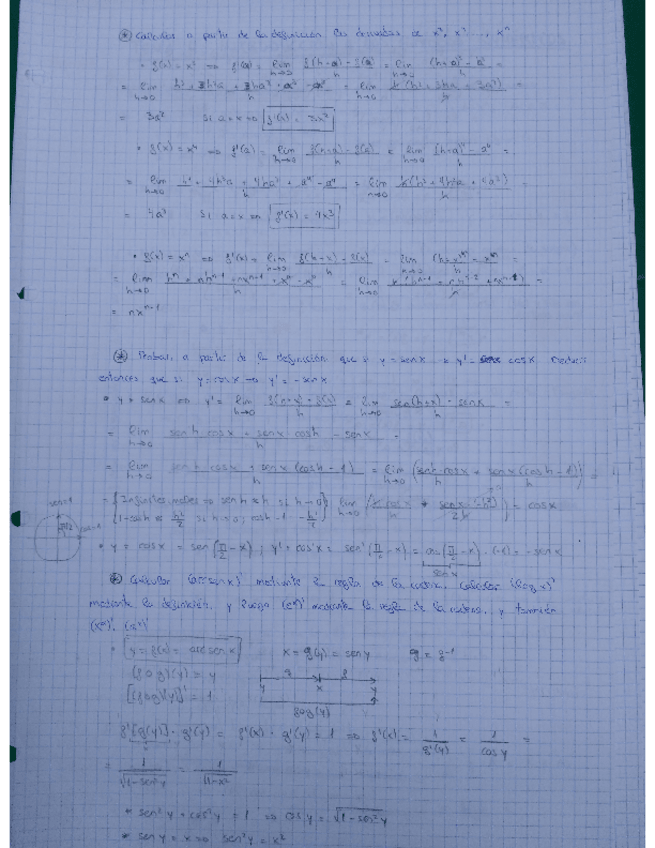 ⊛ Calcular a partir de la definición las derivadas de x³, x⁴, ..., xⁿ
• f(x) = x³ ⇒ f'(a) = lim h→0 (f(h+a) - f(a))/h = lim h→0 ((h+a)³ - a³)/h =
= lim h→0 (h³ + 3h²a + 3ha² + a³ - a³)/h = lim h→0 h(h² + 3ha + 3a²)/h =
= 3a² Si a = x ⇒ f'(x) = 3x²
• f(x) = x⁴ ⇒ f'(a) = lim h→0 (f(h+a) - f(a))/h = lim h→0 ((h+a)⁴ - a⁴)/h =
= lim h→0 (h⁴ + 4h³a + 4ha³ + a⁴ - a⁴)/h = lim h→0 h(h³ + 4h²a + 4a³)/h =
= 4a³ Si a = x ⇒ f'(x) = 4x³
• f(x) = xⁿ ⇒ f'(x) = lim h→0 (f(h+x) - f(x))/h = lim h→0 ((h+x)ⁿ - xⁿ)/h =
= lim h→0 (hⁿ + nhⁿ⁻¹ + nxⁿ⁻¹ + xⁿ - xⁿ)/h = lim h→0
= nxⁿ⁻¹
⊛ Probar, a partir de la definición que si y = senx ⇒ y' = cosx Deducir
entonces que si y = cosx ⇒ y' = -senx
• y = senx ⇒ y' = lim h→0 (f(h+x) - f(x))/h = lim h→0 (sen(h+x) - senx)/h =
= lim h→0 (senh cosx + senx cosh - senx)/h =
= lim h→0 (senh cosx + senx (cosh - 1))/h = lim h→0 (senh cosx/h + senx (cosh - 1)/h) =
sen=1 cos=1 π/2
= {Infinitesimales ⇒ senh ≈ h si h→0 } lim h→0 (h cosx/h + senx (-h²)/2h) = cosx
{1 - cosh ≈ h²/2 si h→0; cosh - 1 = -h²/2}
• y = cosx = sen(π/2 - x); y' = cos'x = sen'(π/2 - x) = cos(π/2 - x) · (-1) = -senx
senx
⊛ Calcular (arcsenx)' mediante la regla de la cadena, calcular (log x)'
mediante la definición, y luego (eˣ)' mediante la regla de la cadena, y también
(xᵃ)', (aˣ)'
• y = f(x) = arcsenx x = g(y) = seny g = f⁻¹
(fog)(y) = y g f
[(fog)(y)]' = 1 y x y
fog(y)
f'[g(y)] · g'(y) = f'(x) · g'(y) = 1 ⇒ f'(x) = 1/g'(y) = 1/cosy =
x
= 1/√(1-sen²y) = 1/√(1-x²)
* sen²y + cos²y = 1 ⇒ cosy = √(1-sen²y)
* seny = x ⇒ sen²y = x²